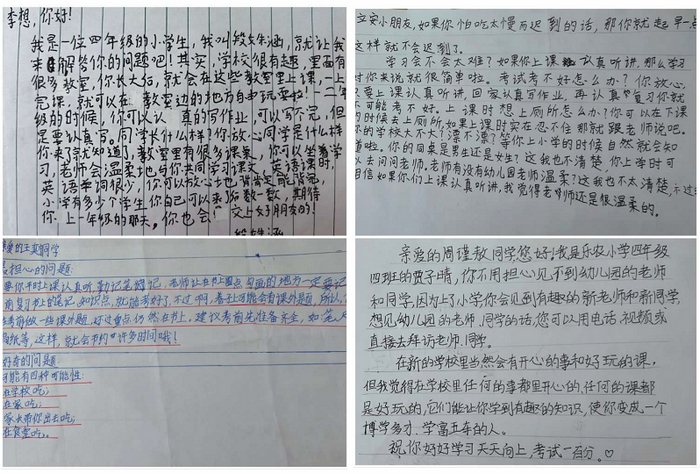 李想,你好!
我是一位四年级的小学生,我叫
就让我
来解答你的问题吧!其实,学校很有趣,里面有
很多教室,你长大后,就会在这些教室里上课,一上
完课,就可以在教室边的地方自由玩耍啦!一二年
级的时候,你可以认真的写作业,可以写个完,但
是要认真写。同学长什么样?你放心,同学是什么样
你来了就知道了,教室里有很多课桌,你可以坐着学
习,老师会温柔地与你共同学习课本,英语课时,
英语单词很少,你可以放心,
小学有多少个学生你自己可以来后数一数,期待
你上一年级的那天。你也会交上好朋友的!
立安小朋友,如果你怕吃太慢而迟到的话,那你就起早一点
这样就不会迟到了。
学习会不会太难?如果你上课认真听讲,那么学习
对你来说就很简单啦。考试考不好怎么办?你放心,
只要上课认真听讲,回家认真写作业,再认真复习你就
不可能考不好。上课时想上厕所怎么办?你可以在下课
的时候去上厕所,如果上课时实在忍不住那就跟老师说吧。
你的学校大不大?漂不漂亮?等你上小学的时候自然就会知
道啦。你的同桌是男生还是女生?这我也不清楚,你上学时可
以去问问老师。老师有没有幼儿园老师温柔?这我也不太清楚,不过
相信如果你们上课认真听讲,我觉得老师还是很温柔的。
爱的王真同学
担心的问题:
要你平时上课认真听,勤记笔记,老师让在书上重点勾画的地方一定要记
前复习书上的笔记、知识点,就能考好了,不过啊,卷子上可能会有课外题,所以,你
考前做一些课外题,不过重点仍然在书上,建议考前先准备齐全,如笔、尺
纸等,这样,就会节约许多时间哦!
好奇的问题:
可能有四种可能性
在学校吃;
在家吃;
家长带你出去吃;
在食堂吃。
亲爱的周瑾敖同学您好!我是乐农小学四年级
四班的贾子晴,你不用担心见不到幼儿园的老师
和同学,因为上了小学你会见到有趣的新老师和新同学,
想见幼儿园的老师、同学的话,您可以用电话、视频或
直接去拜访老师、同学。
在新的学校里当然会有开心的事和好玩的课,
但我觉得在学校里任何的事都里开心的,任何的课都
是好玩的,它们能让你学到有趣的知识,使你变成一个
博学多才、学富五车的人。
祝你好好学习天天向上,考试一百分。♡